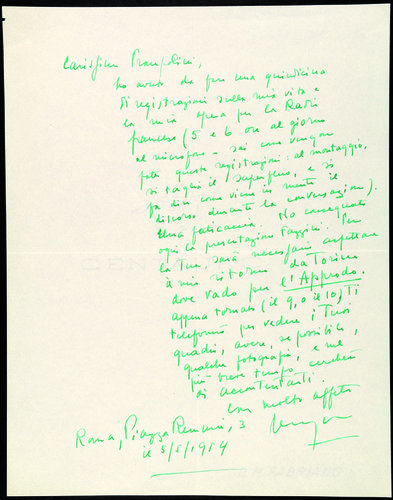 Carissimo Prampolini,
ho avuto da fare una quindicina
di registrazioni sulla mia vita e
la mia opera per la Radio
francese (5 e 6 ore al giorno
al microfono - sai come vengono
fatte queste registrazioni: al montaggio,
si taglia il superfluo, e si
fa dir come viene in mente il
discorso durante la conversazione).
Una faticaccia. Ho consegnato
oggi la presentazione Fazzini. Per
la Tua, sarà necessario aspettare
il mio ritorno da Torino
dove vado per l'Approdo.
Appena tornato (il 9, o il 10) Ti
telefonerò per vedere i Tuoi
quadri, avere, se possibile,
qualche fotografia, e nel
più breve tempo cercherò
di accontentarti.
Con molto affetto
Roma, Piazza Remuria, 3
il 5/5/1954